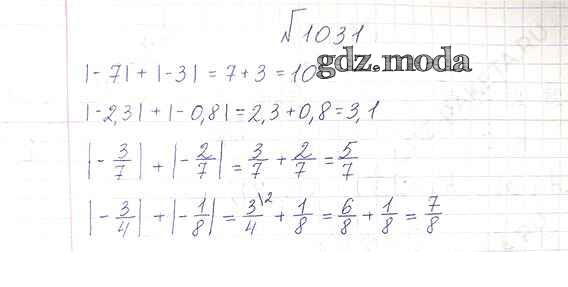 √1031
|-7| + |-3| = 7 + 3 = 10
gdz.moda
|-2,3| + |-0,8| = 2,3 + 0,8 = 3,1
|-3/7| + |-2/7| = 3/7 + 2/7 = 5/7
|-3/4| + |-1/8| = 3\2/4 + 1/8 = 6/8 + 1/8 = 7/8